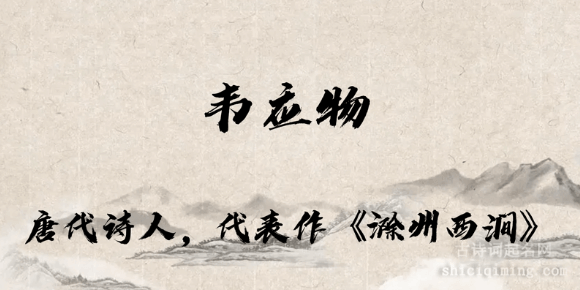 韦应物
唐代诗人，代表作《滁州西涧》
古诗词起名网
shiciqiming.com